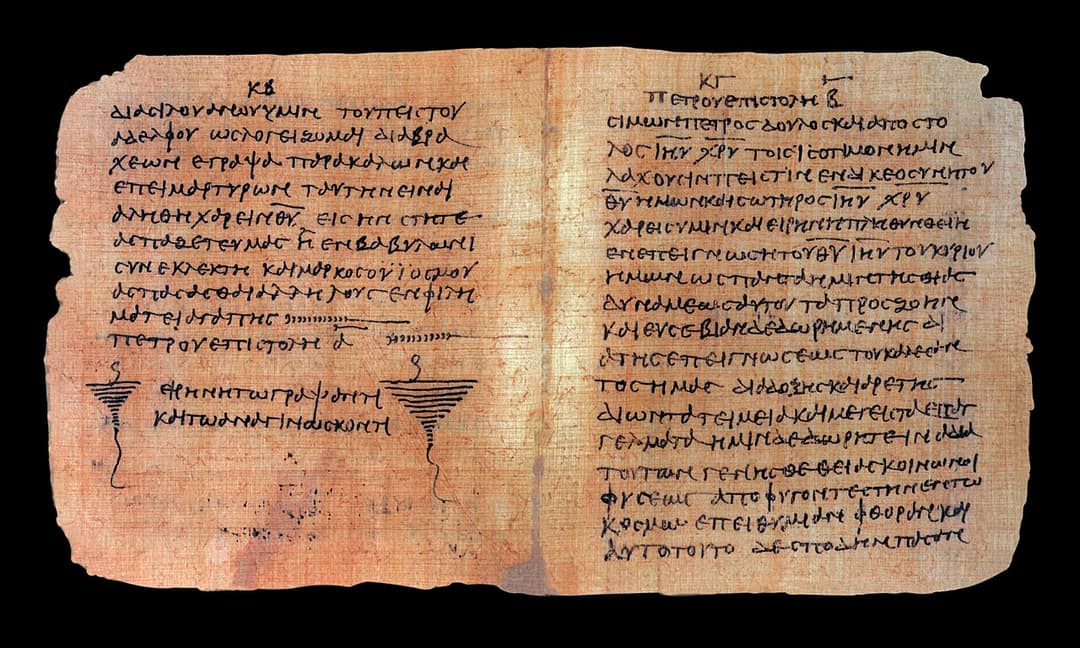 ΚΒ
ΔΙΑ ϹΙΛΟΥΑΝΟΥ ΥΜΙΝ ΤΟΥ ΠΙϹΤΟΥ
ΑΔΕΛΦΟΥ ΩϹ ΛΟΓΕΙΖΟΜΑΙ ΔΙΑ ΒΡΑ
ΧΕΩΝ ΕΓΡΑΨΑ ΠΑΡΑΚΑΛΩΝ ΚΑΙ
ΕΠΕΙΜΑΡΤΥΡΩΝ ΤΑΥΤΗΝ ΕΙΝΑΙ
ΑΛΗΘΗ ΧΑΡΕΙΝ ΘΥ ΕΙϹ ΗΝ ϹΤΗΤΕ
ΑϹΠΑΖΕΤΕ ΥΜΑϹ Η ΕΝ ΒΑΒΥΛΩΝΙ
ϹΥΝΕΚΛΕΚΤΗ ΚΑΙ ΜΑΡΚΟϹ Ο ΥΙΟϹ ΜΟΥ
ΑϹΠΑϹΑϹΘΑΙ ΑΛΛΗΛΟΥϹ ΕΝ ΦΙΛΗ
ΜΑΤΕΙ ΑΓΑΠΗϹ
ΠΕΤΡΟΥ ΕΠΙϹΤΟΛΗ Α
ΕΙΡΗΝΗ ΤΩ ΓΡΑΨΑΝΤΙ
ΚΑΙ ΤΩ ΑΝΑΓΙΝΩϹΚΟΝΤΙ
ΚΓ
ΠΕΤΡΟΥ ΕΠΙϹΤΟΛΗ Β
ϹΙΜΩΝ ΠΕΤΡΟϹ ΔΟΥΛΟϹ ΚΑΙ ΑΠΟϹΤΟ
ΛΟϹ ΙΗΥ ΧΡΥ ΤΟΙϹ ΙϹΟΤΙΜΟΝ ΗΜΙΝ
ΛΑΧΟΥϹΙΝ ΠΙϹΤΙΝ ΕΝ ΔΙΚΕΟϹΥΝΗ ΤΟΥ
ΘΥ ΗΜΩΝ ΚΑΙ ϹΩΤΗΡΟϹ ΙΗΥ ΧΡΥ
ΧΑΡΕΙϹ ΥΜΙΝ ΚΑΙ ΕΙΡΗΝΗ ΠΛΗΘΥΝΘΕΙΗ
ΕΝ ΕΠΕΙΓΝΩϹΗ ΤΟΥ ΘΥ ΙΗΥ ΤΟΥ ΚΥΡΙΟΥ
ΗΜΩΝ ΩϹ ΠΑΝΤΑ ΗΜΙΝ ΤΗϹ ΘΙΑϹ
ΔΥΝΑΜΕΩϹ ΑΥΤΟΥ ΤΑ ΠΡΟϹ ΖΩΗΝ
ΚΑΙ ΕΥϹΕΒΙΑΝ ΔΕΔΩΡΗΜΕΝΗϹ ΔΙ
Α ΤΗϹ ΕΠΕΙΓΝΩϹΕΩϹ ΤΟΥ ΚΑΛΕϹΑΝ
ΤΟϹ ΗΜΑϹ ΔΙΑ ΔΟΞΗϹ ΚΑΙ ΑΡΕΤΗϹ
ΔΙ ΩΝ ΤΑ ΤΕΙΜΕΙΑ ΚΑΙ ΜΕΓΕΙϹΤΑ ΕΠΑΓ
ΓΕΛΜΑΤΑ ΗΜΙΝ ΔΕΔΩΡΗΤΕ ΙΝΑ ΔΙΑ
ΤΟΥΤΩΝ ΓΕΝΗϹΘΕ ΘΕΙΑϹ ΚΟΙΝΩΝΟΙ
ΦΥϹΕΩϹ ΑΠΟΦΥΓΟΝΤΕϹ ΤΗΝ ΕΝ ΤΩ
ΚΟϹΜΩ ΕΠΕΙΘΥΜΙΑΝ ΦΘΟΡΑΝ ΚΑΙ
ΑΥΤΟ ΤΟΥΤΟ ΔΕ ϹΠΟΔΗΝ ΠΑϹΑΝ